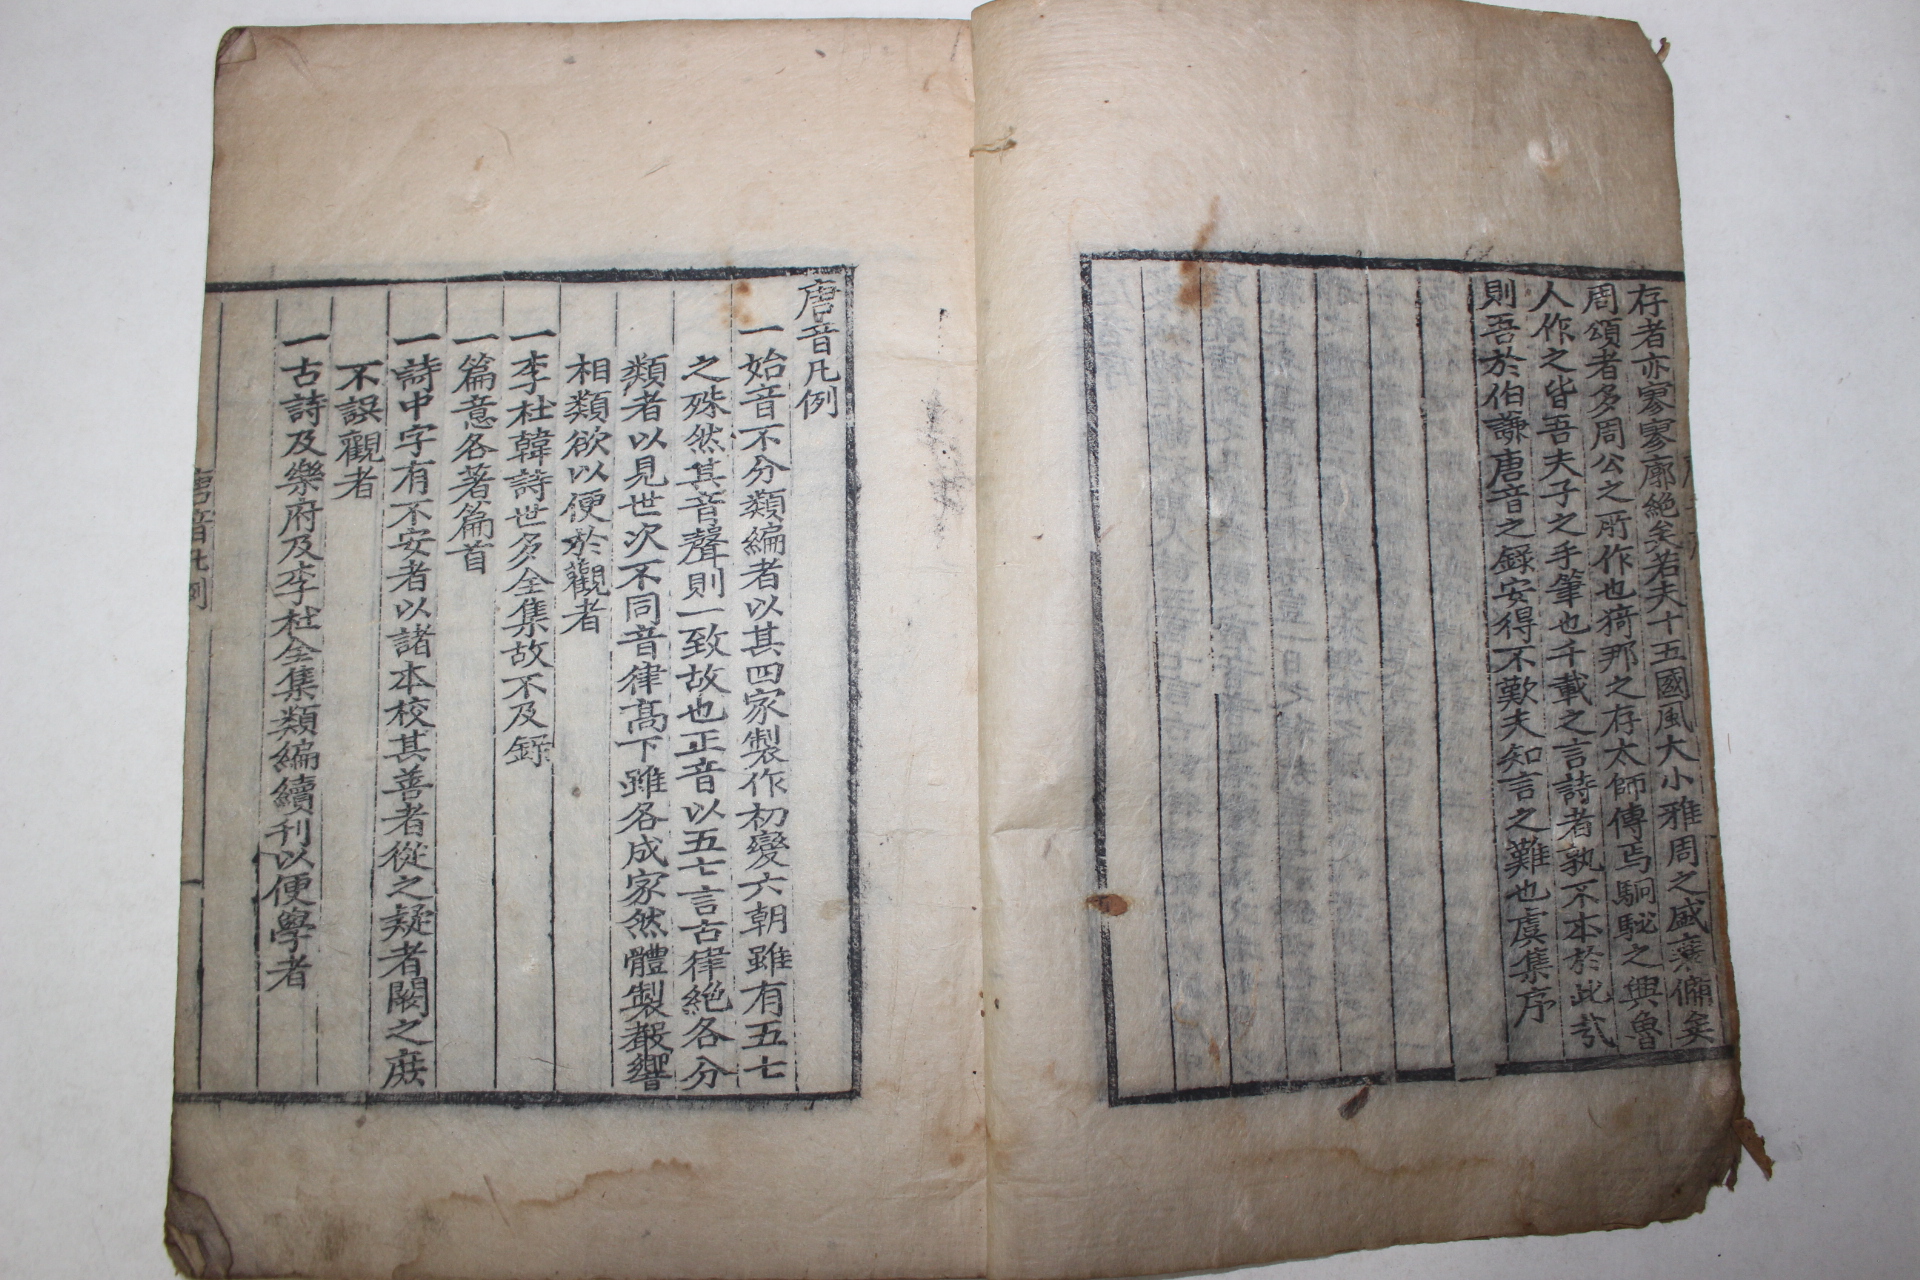 存者亦寥寥廓絶矣若夫十五國風大小雅周之盛衰備矣
周頌者多周公之所作也猗那之存太師傳焉駉駜之興魯
人作之皆吾夫子之手筆也千載之言詩者孰不本於此㢤
則吾於伯謙唐音之録安得不歎夫知言之難也虞集序
唐音凡例
一始音不分類編者以其四家製作初變六朝雖有五七
之殊然其音聲則一致故也正音以五七言古律絶各分
類者以見世次不同音律高下雖各成家然體製聲響
相類欲以便於觀者
一李杜韓詩世多全集故不及錄
一篇意各著篇首
一詩中字有不安者以諸本校其善者從之疑者闕之庶
不誤觀者
一古詩及樂府及李杜全集類編續刊以便學者
唐音凡例
一